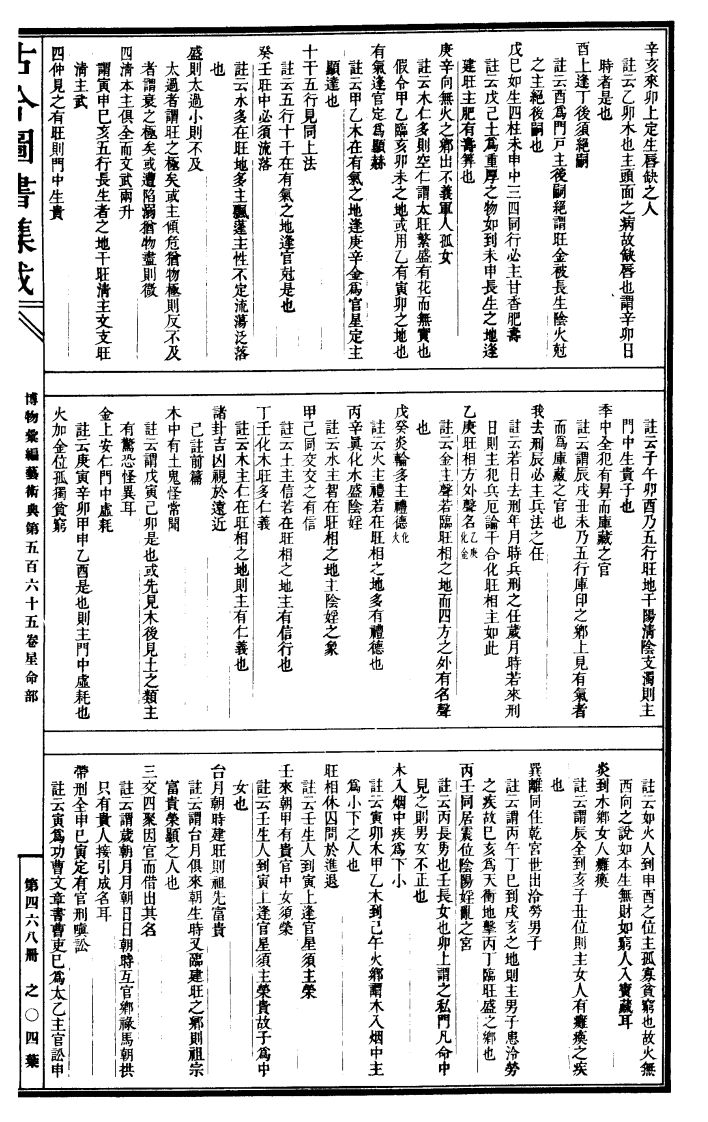 辛亥來卯上定生唇缺之人
註云乙卯木也主頭面之病故缺唇也謂辛卯日
時者是也
酉上逢丁後須絕嗣
註云酉為門戸主後嗣絕謂旺金被長生陰火尅
之主絕後嗣也
戊巳如生四柱未申中三四同行必主甘香肥壽
註云戊己土為重厚之物如到未申長生之地逢
建旺主肥有壽算也
庚辛向無火之鄉出不義軍人孤女
註云木仁多則空仁謂太旺繁盛有花而無實也
假令甲乙臨亥卯未之地或用乙有寅卯之地也
有氣逢官定為顯赫
註云甲乙木在有氣之地逢庚辛金為官星定主
顯達也
十干五行見同上法
註云五行十干在有氣之地逢官尅是也
癸壬旺中必須流落
註云水多在旺地多主飄蓬主性不定流蕩泛落
也
盛則太過小則不及
太過者謂旺之極矣或主傾危猶物極則反不及
者謂衰之極矣或遭陷溺猶物盡則微
四清本主俱全而文武兩升
謂寅申巳亥五行長生者之地干旺清主文支旺
清主武
四仲見之有旺則門中生貴
註云子午卯酉乃五行旺地干陽清陰支濁則主
門中生貴子也
季中全犯有昇而庫藏之官
註云謂辰戌丑未乃五行庫印之鄉上見有氣者
而為庫藏之官也
我去刑辰必主兵法之任
註云若日去刑年月時兵刑之任歲月時若來刑
日則主犯兵厄論干合化旺相主如此
乙庚旺相方外聲名乙庚化金
註云金主聲若臨旺相之地而四方之外有名聲
也
戊癸炎輪多主禮德化火
註云火主禮若在旺相之地多有禮德也
丙辛眞化水盛陰婬
註云水主智在旺相之地主陰婬之象
甲己同交交之有信
註云土主信若在旺相之地主有信行也
丁壬化木旺多仁義
註云木主仁在旺相之地則主有仁義也
諸卦吉凶視於遠近
已註前篇
木中有土鬼怪常聞
註云謂戊寅己卯是也或先見木後見土之類主
有驚恐怪異耳
金上安仁門中虛耗
註云庚寅辛卯甲申乙酉是也則主門中虛耗也
火加金位孤獨貧窮
註云如火人到申酉之位主孤寡貧窮也故火無
西向之說如本生無財如窮人入寶藏耳
炎到水鄉女人癱瘓
註云謂辰全到亥子丑位則主女人有癱瘓之疾
也
巽離同住乾宮世出洽勞男子
註云謂丙午丁巳到戌亥之地則主男子患洽勞
之疾故巳亥為天衝地擊丙丁臨旺盛之鄉也
丙壬同居震位陰陽婬亂之宮
註云丙長男也壬長女也卯上謂之私門凡命中
見之則男女不正也
木入烟中疾為下小
註云寅卯木甲乙木到巳午火鄉謂木入烟中主
為小下之人也
旺相休囚問於進退
註云壬生人到寅上逢官星須主榮
壬來朝甲有貴官中女須榮
註云壬生人到寅上逢官星須主榮貴故子為中
女也
台月朝時建旺則祖先富貴
註云謂台月俱來朝生時又臨建旺之鄉則祖宗
富貴榮顯之人也
三交四聚因官而借出其名
註云謂歲朝月月朝日日朝時互官鄉祿馬朝拱
只有貴人接引成名耳
帶刑全申巳寅定有官刑嗔訟
註云寅為功曹文章書曹吏巳為太乙主官訟申
古今圖書集成
博物彙編藝術典第五百六十五卷星命部
第四六八册 之〇四葉